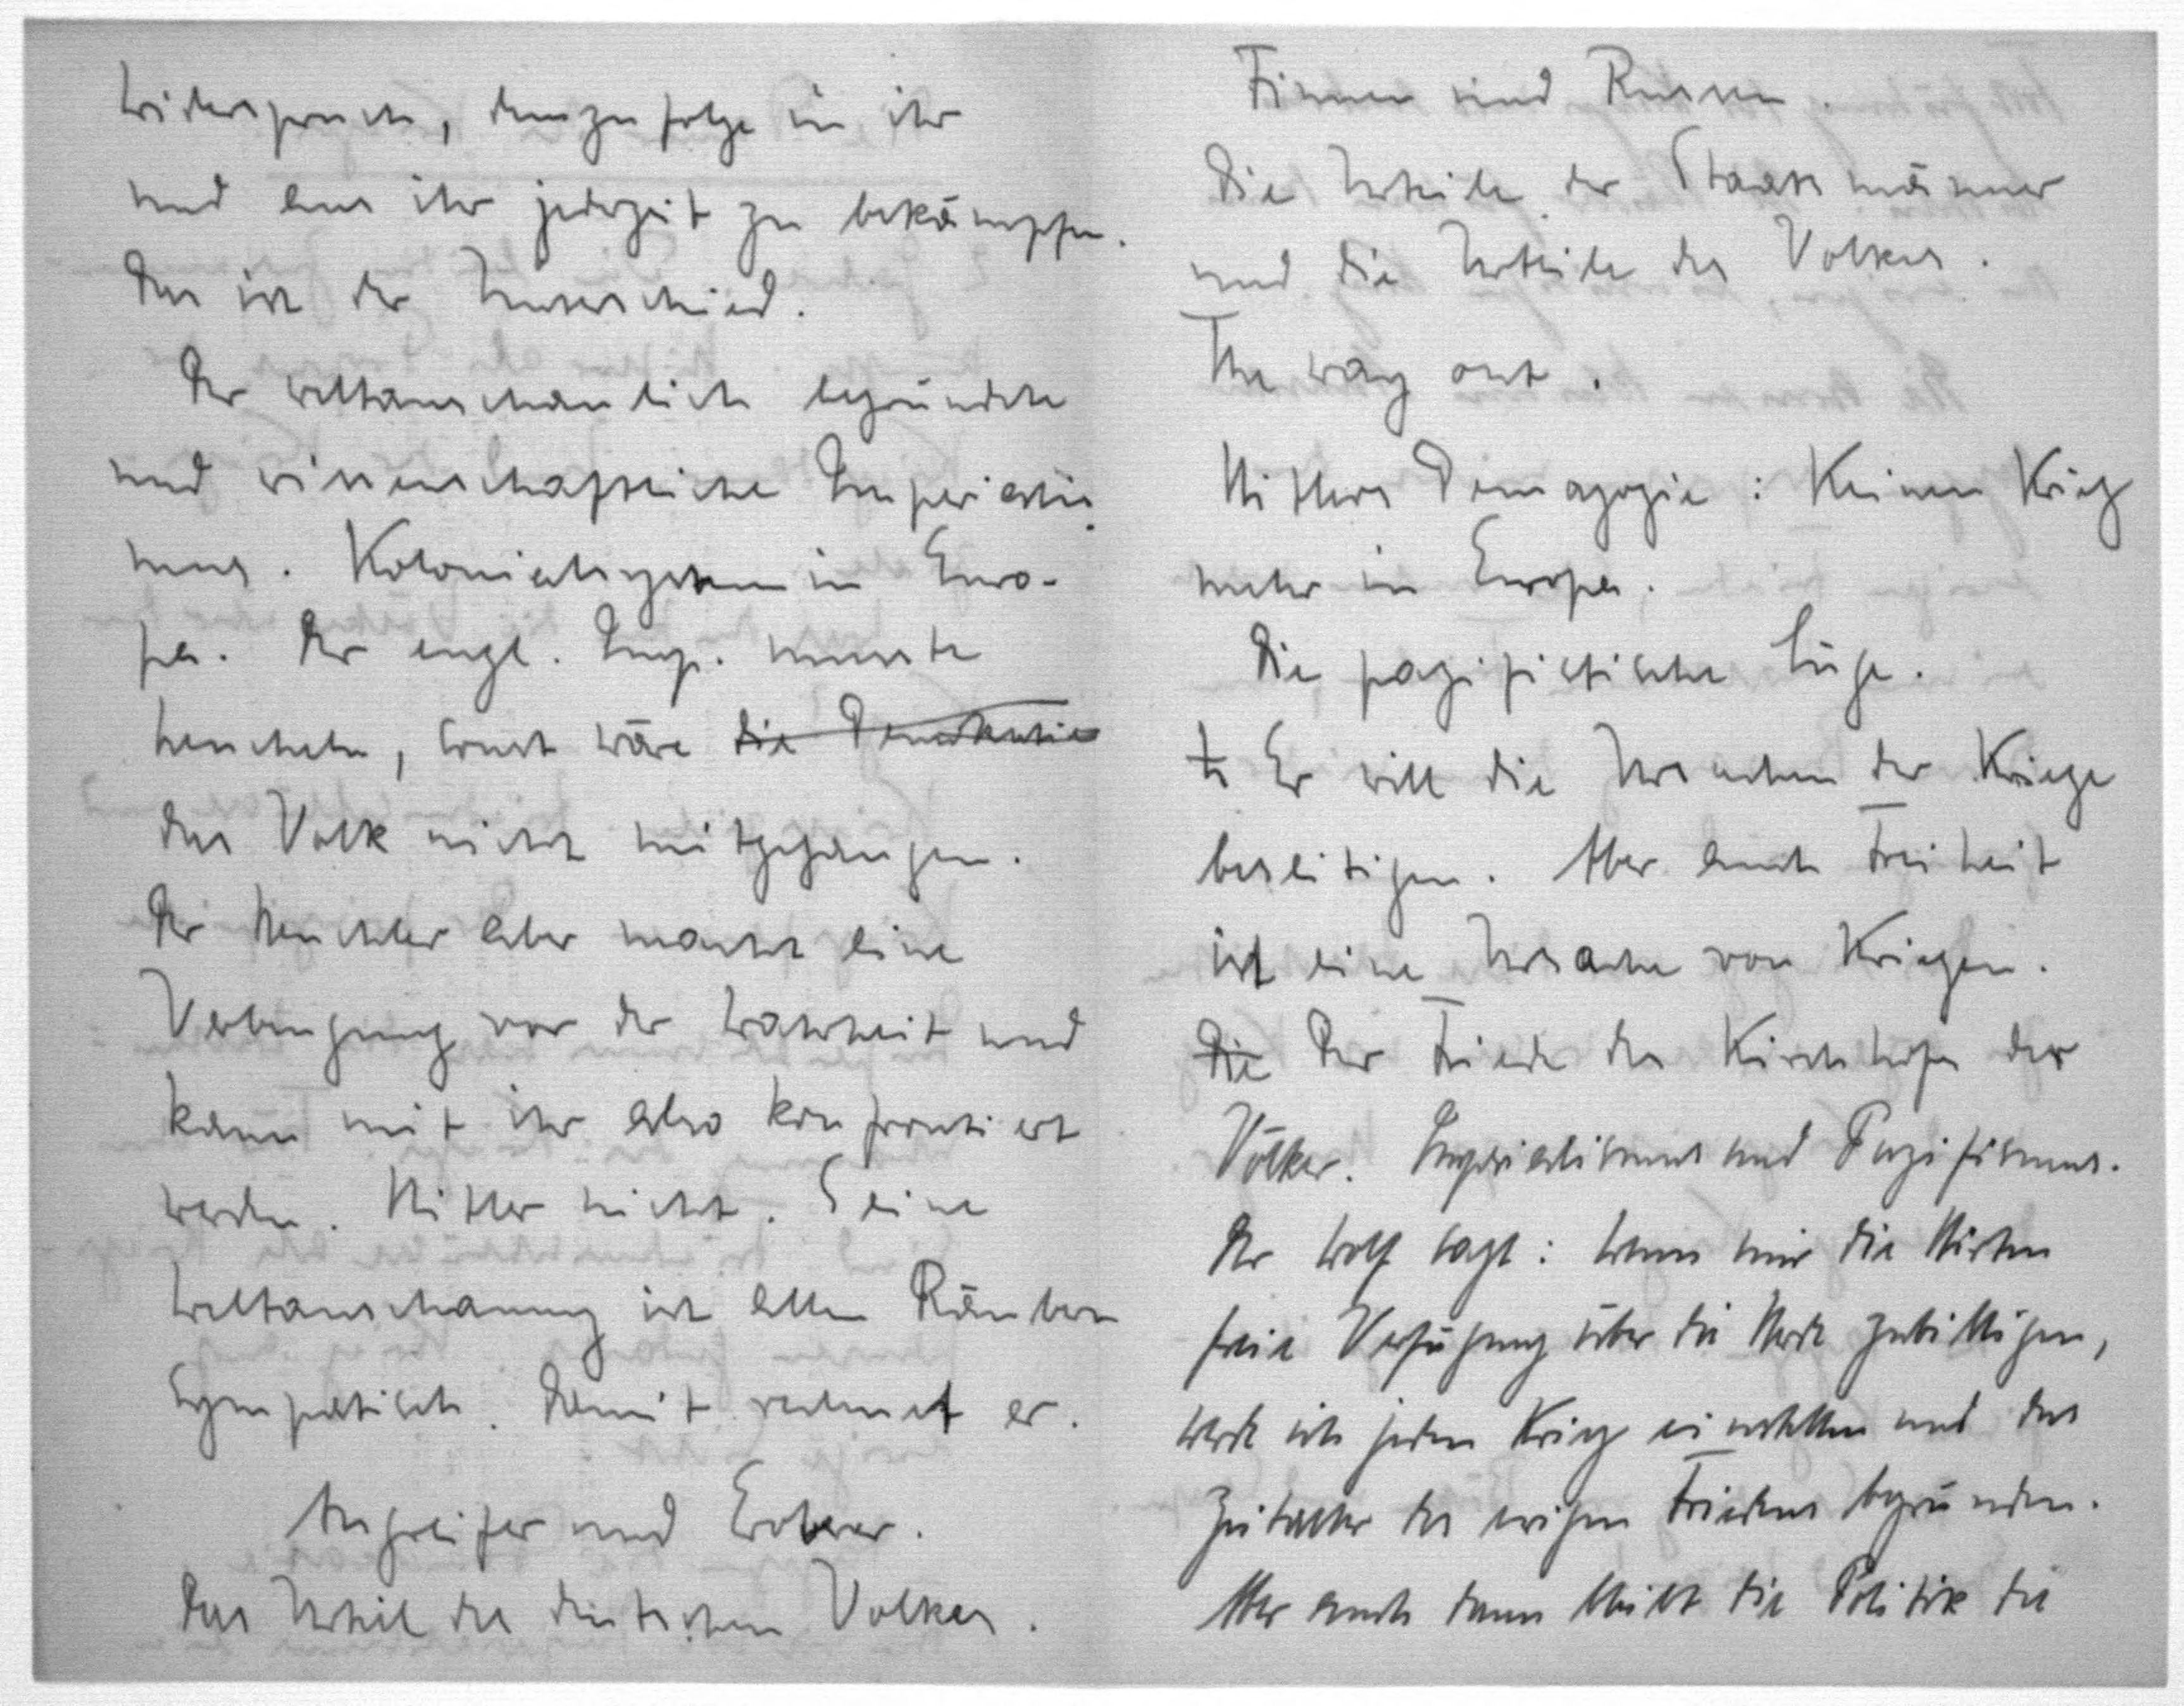 Widerspruch, demzufolge in ihr
und aus ihr jederzeit zu bekämpfen.
Das ist der Unterschied.
Der weltanschaulich begründete
und wissenschaftliche Imperialis-
mus. Kolonialsystem in Euro-
pa. Der engl. Imp. musste
heucheln, sonst wäre die Demokratie
das Volk nicht mitgegangen.
Der Heuchler aber macht eine
Verbeugung vor der Wahrheit und
kann mit ihr also konfrontiert
werden. Hitler nicht. Seine
Weltanschauung ist allen Räubern
sympatisch. Damit rechnet er.
Angreifer und Eroberer.
Das Urteil des deutschen Volkes.
Finnen und Russen.
Die Urteile der Staatsmänner
und die Urteile des Volkes.
The way out.
Hitlers Demagogie: Keinen Krieg
mehr in Europa.
Die pazifistische Lüge.
Er will die Ursachen der Kriege
beseitigen. Aber auch Freiheit
ist eine Ursache von Kriegen.
Die Der Friede des Kirchhofes der
Völker. Imperialismus und Pazifismus.
Der Wolf sagt: Wenn mir die Hirten
freie Verfügung über die Herde zubilligen,
werde ich jeden Krieg einstellen und das
Zeitalter des ewigen Friedens begründen.
Aber auch dann bleibt die Politik die